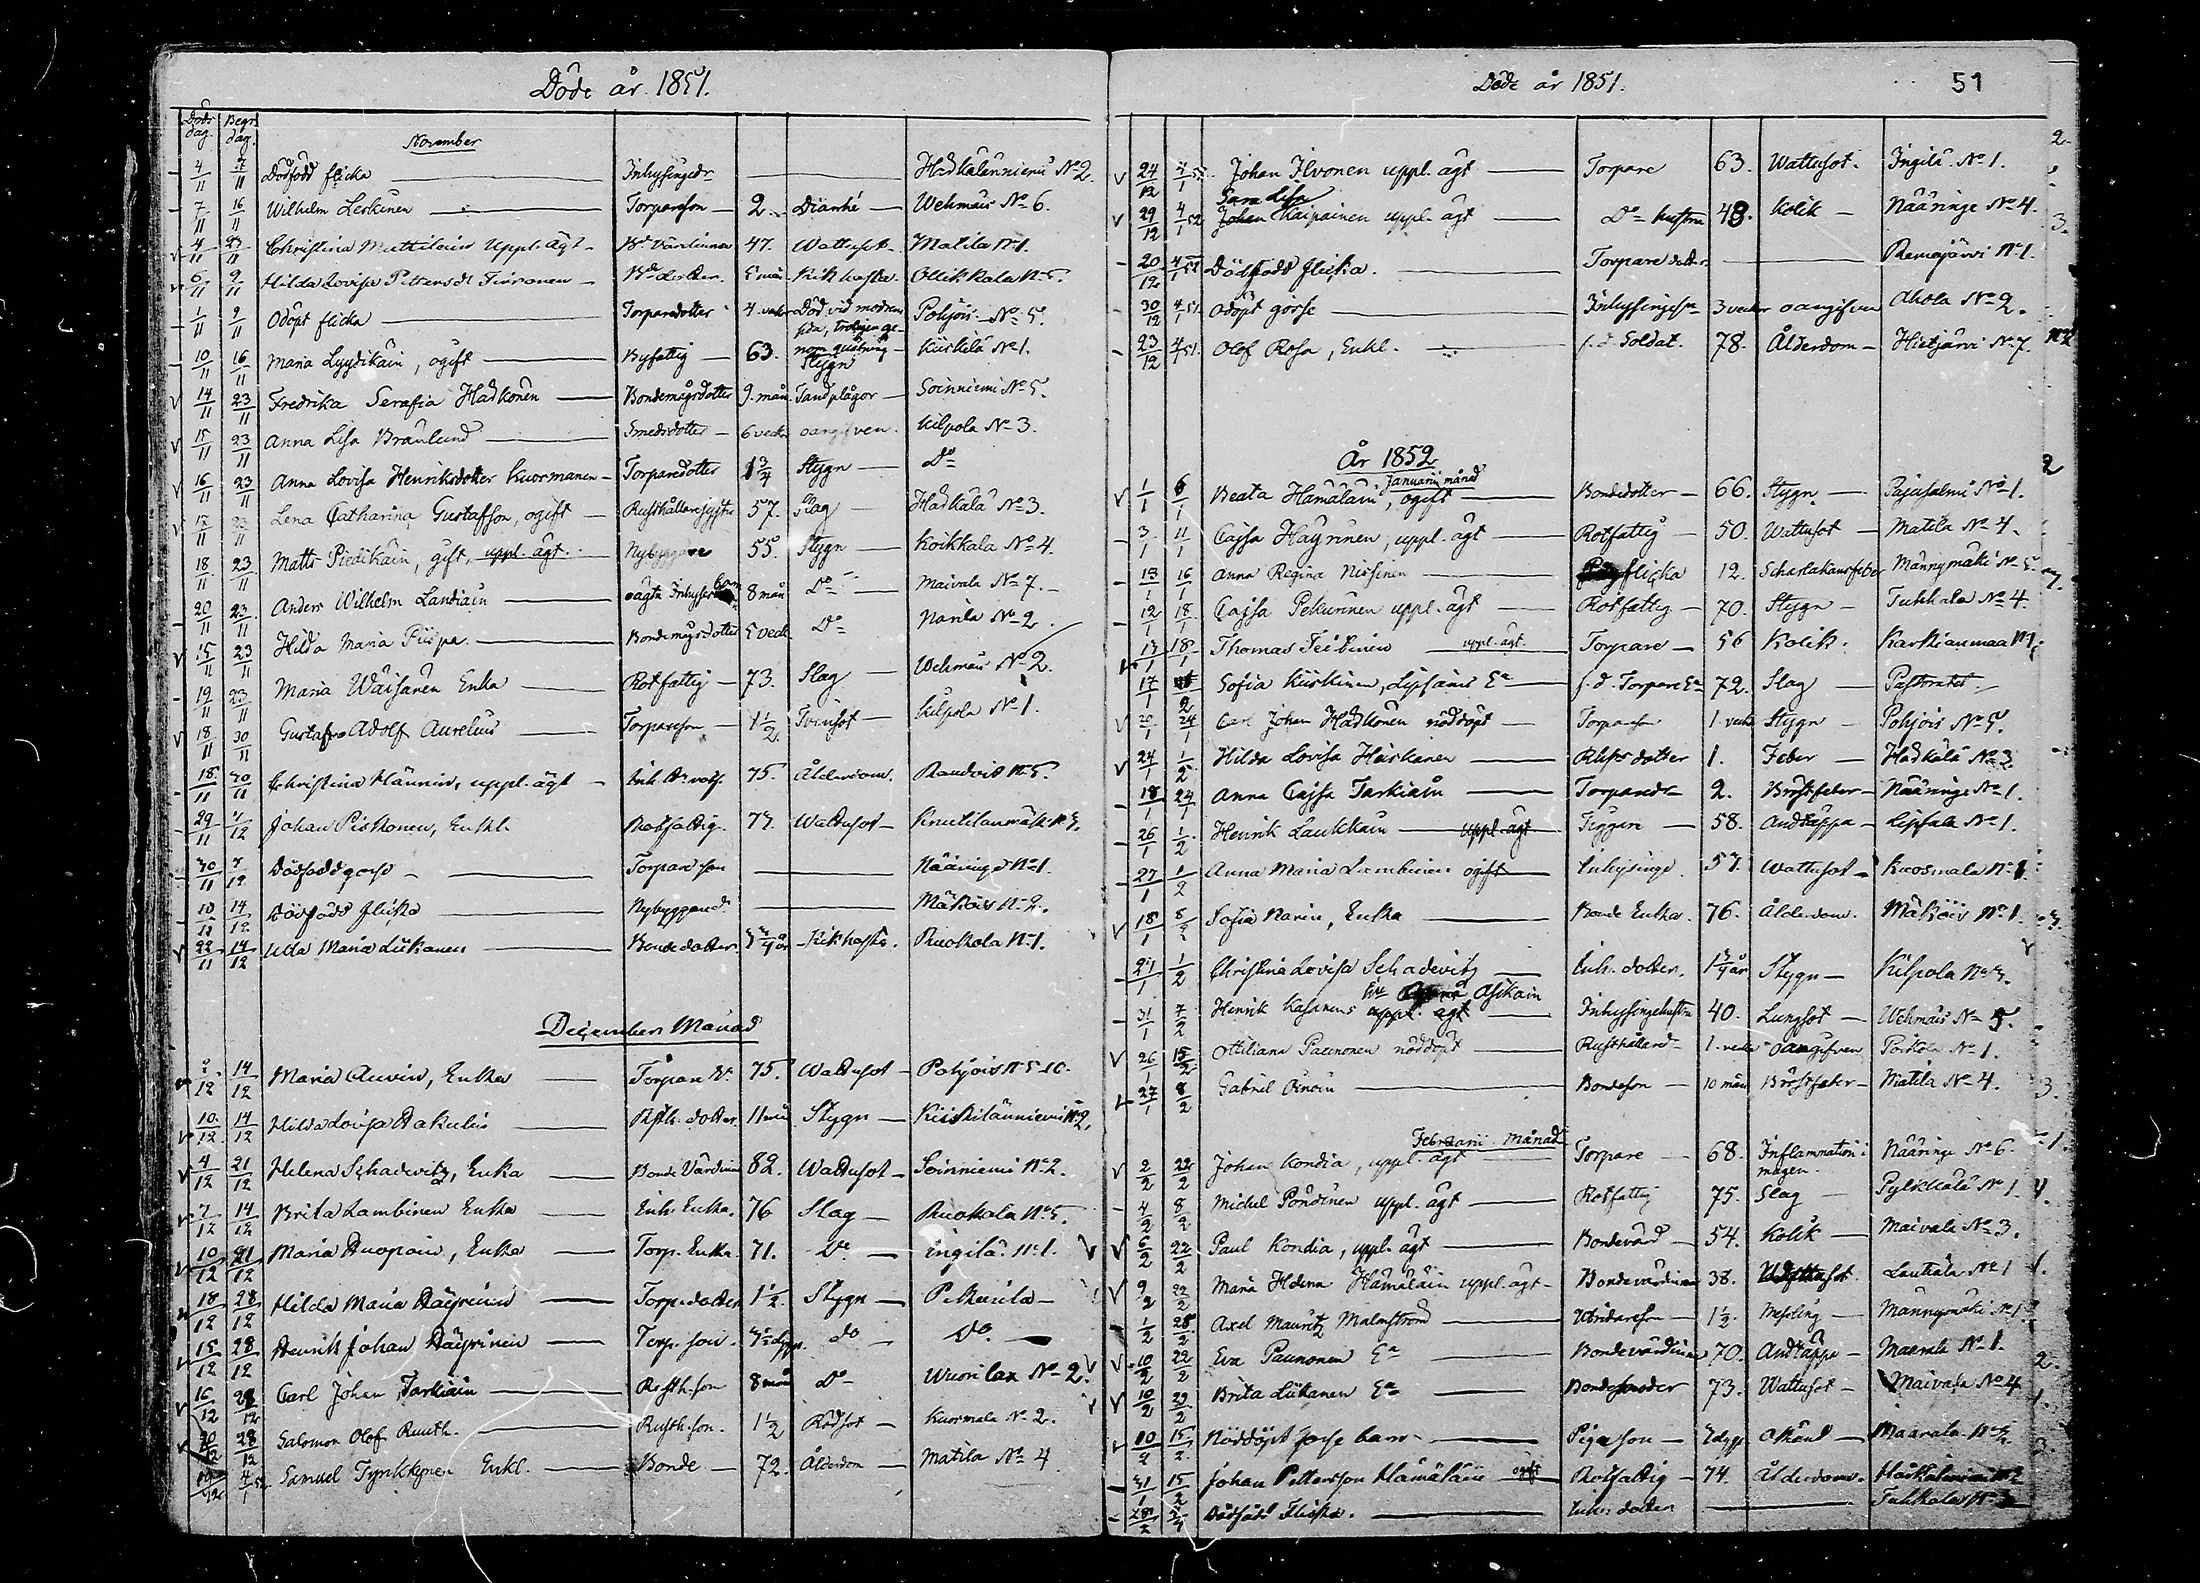 Döde år 1851.
Döds dag. Begr. dag.
November
4/11 7/11 Dödfödd flicka Inhysingedr Hadkalanniemi No 2.
7/11 16/11 Wilhelm Leskinen Torpareson 2. Diarrhé Wehmais No 6.
4/11 23/11 Christina Mattilain Uppl. ägt Bde Värdinna 47. Wattusot Matila No 1.
6/11 9/11 Hilda Lovisa Pettersdr Bde dotter 5 mån Kikhosta. Ollikkala No 5.
1/11 9/11 Odöpt flicka Torparedotter 4. veckor Död vid modrens sida, troligen ge- Pohjois No 5.
10/11 16/11 Maria Lyydikäin, ogift Byfattig 63. nom quäfning Stygn Kiiskilä No 1.
14/11 23/11 Fredrika Serafia Hadkonen Bondemågsdotter 9. mån Tandplågor Soinniemi No 5.
15/11 23/11 Anna Lisa Brånlund Smedsdotter 6 veck oangifven. Kilpola No 3.
16/11 23/11 Anna Lovisa Henriksdotter Kuormanen Torparedotter 1 3/4 Stygn Do
17/11 23/11 Lena Catharina Gustafsson, ogift Rusthållaresyster 57. Slag Hadkala No 3.
18/11 23/11 Matts Piedikäin, gift, uppl. ägt. Nybyggare 55. Stygn Koikkala No 4.
20/11 23/11 Anders Wilhelm Landiain oägta Inhyses barn 8 mån Do Maivala No 7.
15/11 23/11 Hilda Maria Piispa Bondemågsdotter 5 veck Do Narila No 2.
19/11 23/11 Maria Wäisänen Enka Rotfattig 73. Slag Wehmais No 2.
18/11 30/11 Gustaf Adolf Aurelius Torpareson 1 1/2. Tvinsot Kilpola No 1.
18/11 30/11 Christina Männin, uppl. ägt 75. Ålderdom. No 5.
29/11 7/12 Johan Piskonen, Enkl. Rotfattig. 77. Wattusot Knutilanmäki No 3.
30/11 7/12 Dödfödd gosse Torpareson Nääringe No 1.
10/11 14/12 Dödfödd flicka Nybyggared. Mäkois No 2.
22/11 14/12 Ulda Maria Liikanen Bondedotter 3/4 år Kikhosta. Ruokola No 1.
December Månad
2/12 14/12 Maria Auvin, Enka Torpare 75. Wattusot Pohjois No 5.
10/12 14/12 Hilda Lovisa Hakulin Rusth. dotter 11 mån Stygn Kiiskilänniemi No 2.
4/12 21/12 Helena Schadewitz, Enka Bonde Värdinna 82. Wattusot Soinniemi No 2.
7/12 14/12 Brita Lambinen Enka Inh. Enka. 76 Slag Ruokola No 5.
10/12 21/12 Maria Huopain, Enka Torp. Enka 71. Do Ingilä No 1.
18/12 28/12 Hilda Maria Häyrinen Torp. dotter 1 1/2. Stygn Pekurila
15/12 28/12 Henrik Johan Häyrinen Torp. son do Do.
16/12 28/12 Carl Johan Tarkiain Rusth. son 8 mån Do Wuorilax No 2.
20/12 28/12 Salomon Olof Ruuth. Rusth. son. 1 1/2 Rödsot Kuormala No 2.
19/12 4/1 52 Samuel Tynkkynen Enkl. Bonde 72. Ålderdom Matila No 4
Döde år 1851. 51
24/12 4/1 52. Johan Ilvonen uppl. ägt Torpare 63. Wattusot. Ingilä No 1.
Sara Lisa
29/12 4/1 52 Johan Kaipainen uppl. ägt Do hustru 48. Kolik Nääringe No 4.
20/12 4/1 52 Dödfödd flicka. Torpare dotter Remojärvi No 1.
30/12 4/1 51. Odöpt gosse Inhysingeso 3 veckor oangifven Ahola No 2.
23/12 4/1 51. Olof Rosa, Enkl. f.d. Soldat. 78. Ålderdom Hietjärvi No 7.
År 1852
Januarii månad
1/1 6/1 Beata Hämäläin, ogift Bondedotter 66. Stygn Pajusalmi No 1.
3/1 11/1 Cajsa Häyrinen, uppl. ägt Rotfattig 50. Wattusot Matila No 4.
13/1 16/1 Anna Regina Nissinen flicka 12. Scharlakansfeber Männymäki No 5.
12/1 18/1 Cajsa Pekurinen uppl. ägt Rotfattig 70. Stygn Tuhkala No 4.
13/1 18/1 Thomas Teittinen uppl. ägt. Torpare 56 Kolik. Karkiaumaa No 1.
17/1 Sofia Kiiskinen, Lipsanens Ea f.d. Torpare Ea 72. Slag Pastoratet.
20/1 24/1 Carl Johan Hadkonen nöddöpt Torpareson 1. vecka Stygn Pohjois No 5.
24/1 1/2 Hilda Lovisa Heiskanen Rhs dotter 1. Feber Hadkala No 3.
18/1 24/1 Anna Cajsa Tarkiain Torparedr 2. Bröstfeber Nääringe No 1.
26/1 1/2 Henrik Laukkain uppl. ägt Tiggare 58. Andtäppa Lipsala No 1.
27/1 1/2 Anna Maria Lambinen ogift Inhysinge 57. Wattusot Kuosmala No 1.
18/1 8/2 Sofia Narin, Enka Bonde Enka. 76. Ålderdom. Mäkois No 1.
27/1 1/2 Christina Lovisa Schadevitz Inh. dotter. 1 3/4 år Stygn Kilpola No 3.
Eva Asikain
31/1 7/2 Henrik Kasanens uppl. ägt Inhysingehustru 40. Lungsot Wehmais No 5.
26/1 15/2 Ottiliana Paunonen nöddöpt Rusthållaredr 1. vecka oangifven Poikola No 1.
27/1 8/2 Gabriel Orvoin Bondeson 10 mån Bröstfeber Matila No 4.
Februarii Månad
2/2 22/2 Johan Kondia, uppl. ägt Torpare 68. Inflammation i magen. Nääringe No 6.
4/2 8/2 Michel Pöndinen uppl. ägt Rotfattig 75. Slag Pylkkälä No 1.
6/2 22/2 Paul Kondia, uppl. ägt Bondevärd 54. Kolik Maivala No 3.
9/2 22/2 Maria Helena Hämäläin uppl. ägt Bondevärdinna 38. Wattusot Lautiala No 1
1/2 28/2 Axel Mauritz Malmström 1 1/2. Messling Männymäki No 1.
10/2 22/2 Eva Paunonen Ea Bondevärdinna 70. Andtäppa Maarala No 1.
10/2 22/2 Brita Liikanen Ea Bondemoder 73. Wattusot Maivala No 4
10/2 15/2 Nöddöpt gosse barn Piga son 2 dygn Okänd Maarala No 2.
31/1 15/2 Johan Pettersson Hämäläin ogift Rotfattig 74. Ålderdom.
28/2 Dödfödd Flicka. Inh. dotter Tuhkala No 3